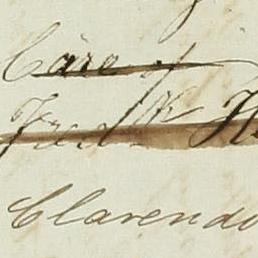 Care of
Fred
Clarendo